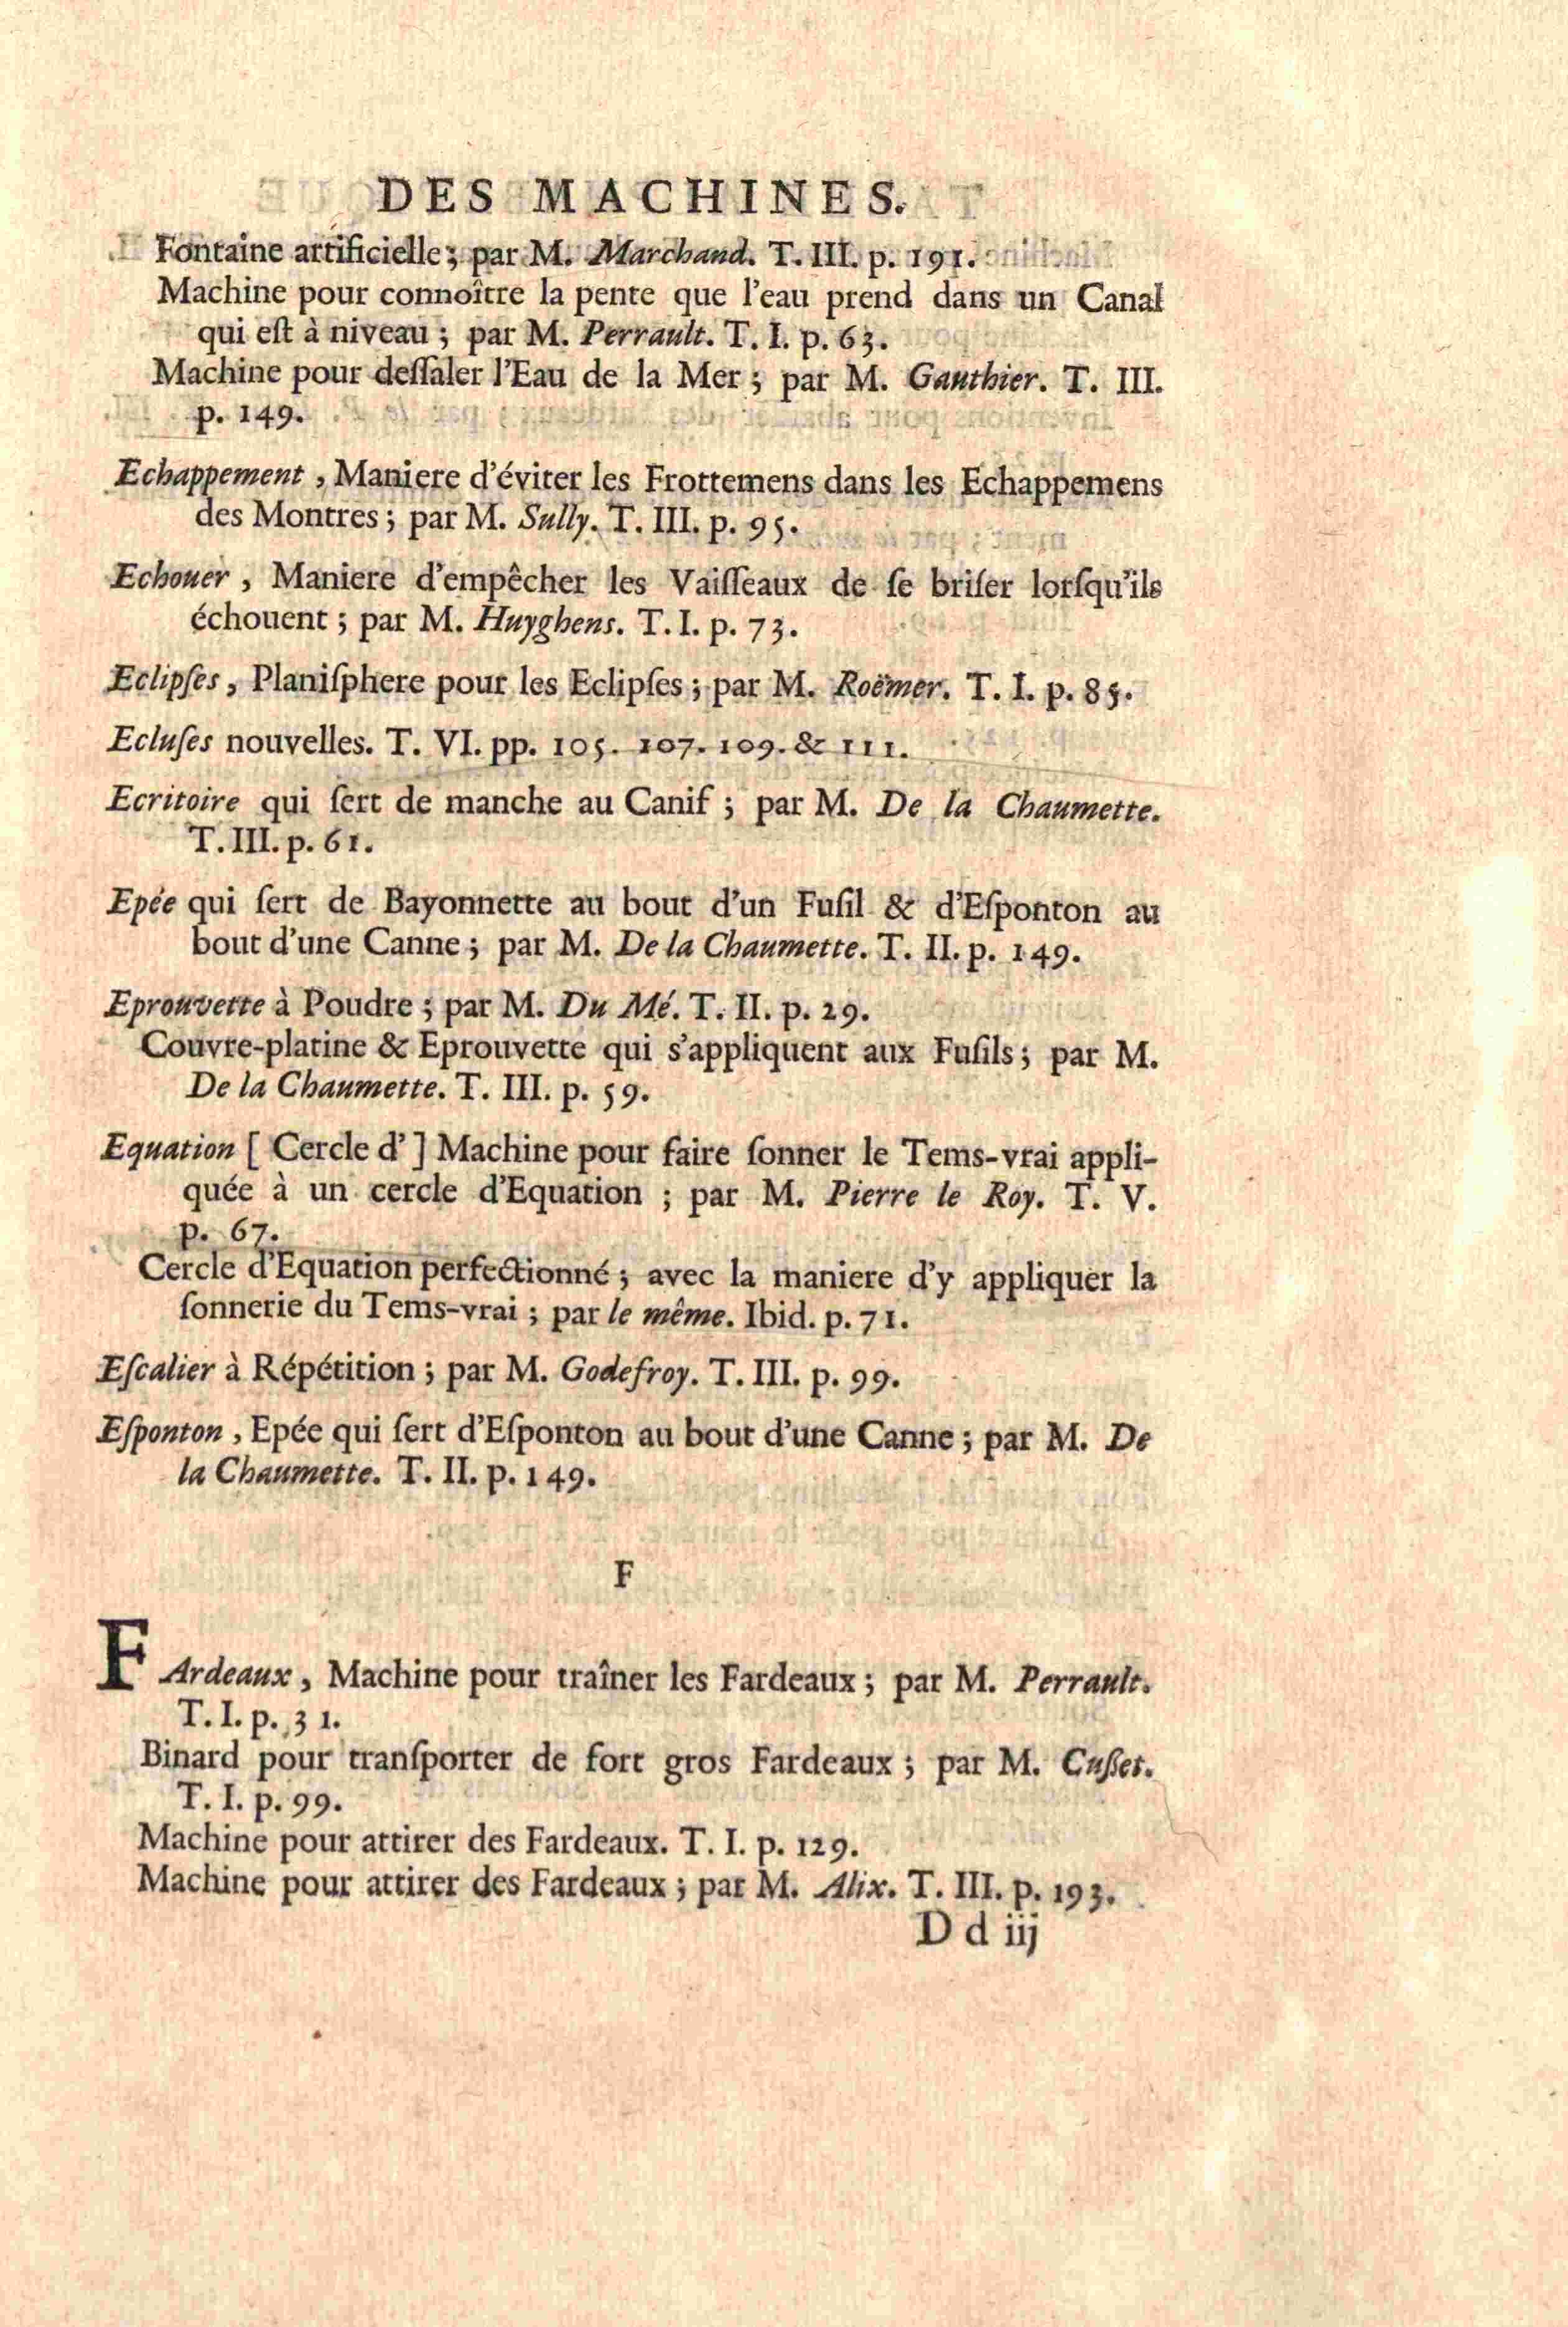 DES MACHINES.
Fontaine artificielle; par M. Marchand. T. III. p. 191.
Machine pour connoître la pente que l'eau prend dans un Canal
qui eſt à niveau; par M. Perrault. T. I. p. 63.
Machine pour deſſaler l'Eau de la Mer; par M. Gauthier. T. III.
p. 149.
Echappement, Maniere d'éviter les Frottemens dans les Echappemens
des Montres; par M. Sully. T. III. p. 95.
Echouer, Maniere d'empêcher les Vaiſſeaux de ſe briſer lorſqu'ils
échouent; par M. Huyghens. T. I. p. 73.
Eclipſes, Planiſphere pour les Eclipſes; par M. Roëmer. T. I. p. 85.
Ecluſes nouvelles. T. VI. pp. 105. 107. 109. & 111.
Ecritoire qui ſert de manche au Canif; par M. De la Chaumette.
T. III. p. 61.
Epée qui ſert de Bayonnette au bout d'un Fuſil & d'Eſponton au
bout d'une Canne; par M. De la Chaumette. T. II. p. 149.
Eprouvette à Poudre; par M. Du Mé. T. II. p. 29.
Couvre-platine & Eprouvette qui s'appliquent aux Fuſils; par M.
De la Chaumette. T. III. p. 59.
Equation [ Cercle d' ] Machine pour faire ſonner le Tems-vrai appli-
quée à un cercle d'Equation; par M. Pierre le Roy. T. V.
p. 67.
Cercle d'Equation perfectionné; avec la maniere d'y appliquer la
ſonnerie du Tems-vrai; par le même. Ibid. p. 71.
Eſcalier à Répétition; par M. Godefroy. T. III. p. 99.
Eſponton, Epée qui ſert d'Eſponton au bout d'une Canne; par M. De
la Chaumette. T. II. p. 149.
F
FArdeaux, Machine pour traîner les Fardeaux; par M. Perrault.
T. I. p. 31.
Binard pour tranſporter de fort gros Fardeaux; par M. Cuſſet.
T. I. p. 99.
Machine pour attirer des Fardeaux. T. I. p. 129.
Machine pour attirer des Fardeaux; par M. Alix. T. III. p. 193.
D d iij